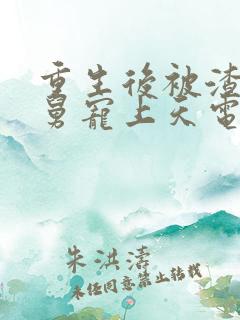 重生後被渣
舅寵上天電
朱洪濤
未经同意禁止转载